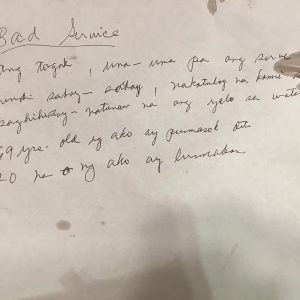 Bad Service
ang tagal, una-una pa ang serve
hindi sabay-sabay, nakatulog na kame sa
paghihintay-natunaw na ang yelo sa water
69 yrs. old ng ako ay pumasok dito
70 na ng ako ay lumabas